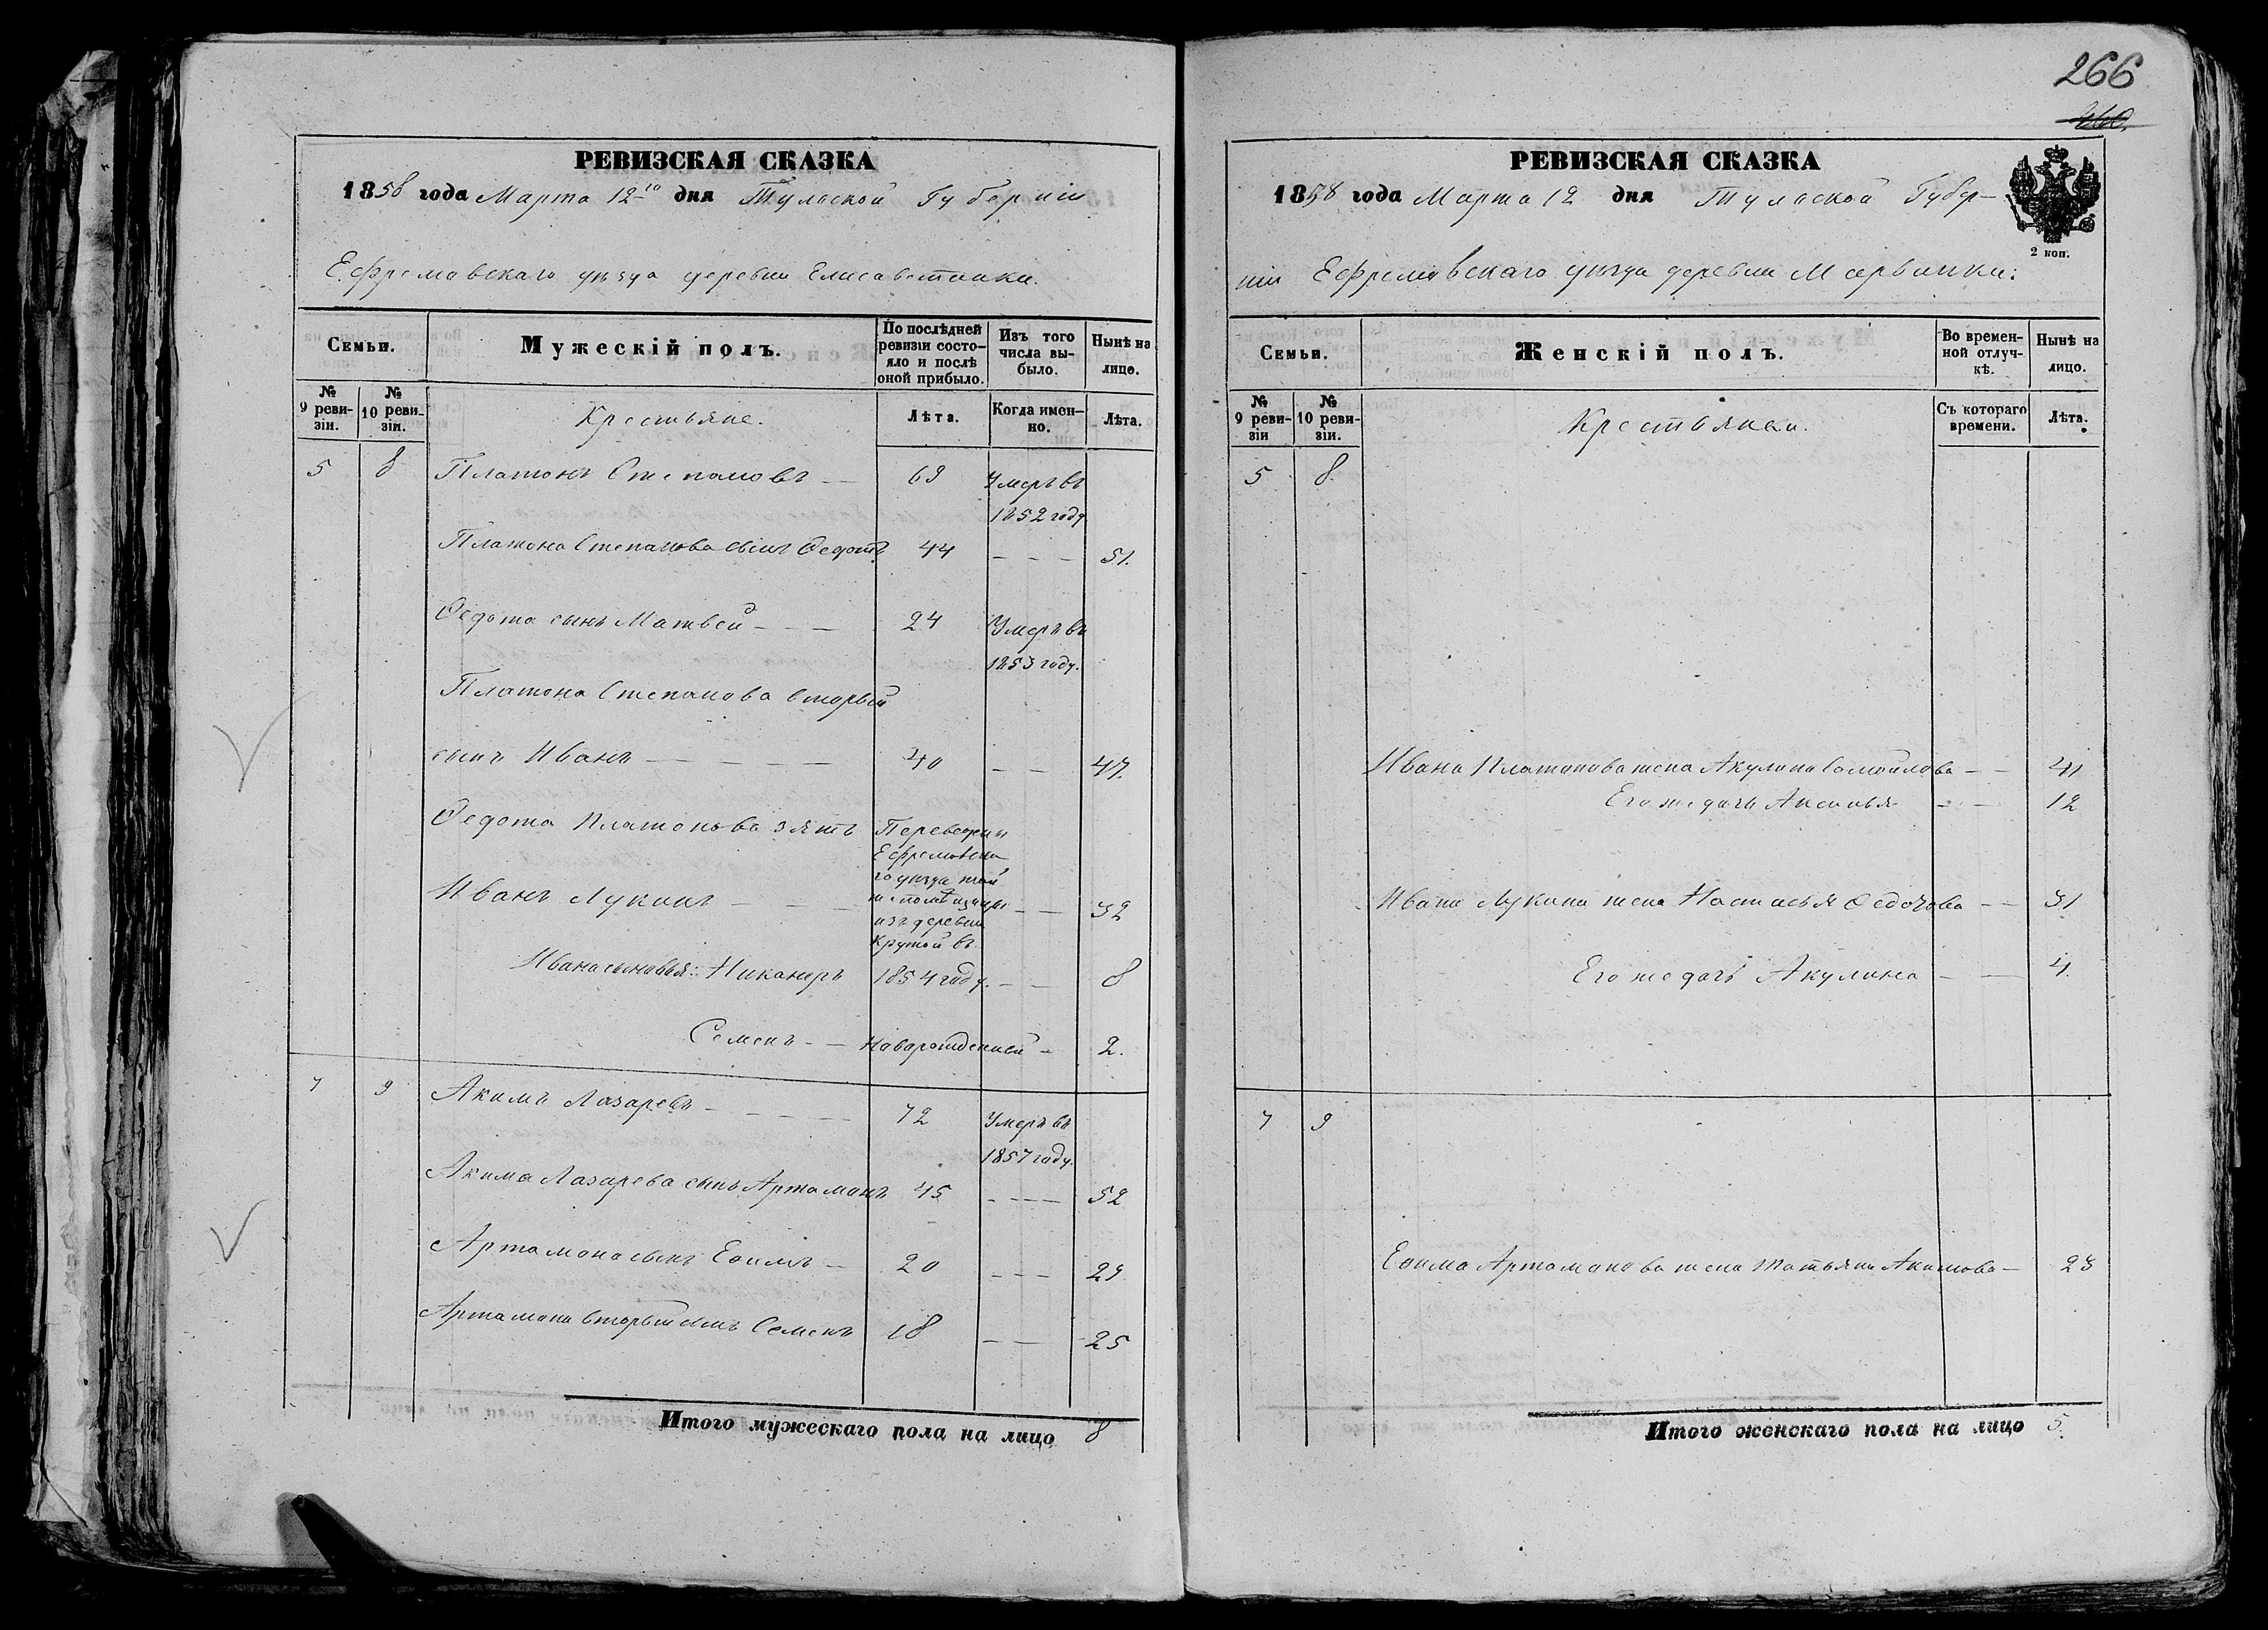 266
РЕВИЗСКАЯ СКАЗКА
1858 года Марта 12го дня Тульской Губерніи
Ефремовскаго уѣзда деревни Елисаветинки.
Семьи.
Мужескій полъ.
По послѣдней ревизіи состо-
яло и послѣ оной прибыло.
Изъ того числа вы-
было.
Нынѣ на лицо.
№ 9 реви-
зіи.
№ 10 реви-
зіи.
Крестьяне.
Лѣта.
Когда имен-
но.
Лѣта.
5 8 Платонъ Степановъ — 69 Умеръ въ
1852 году
Платона Степанова сынъ Ѳедотъ 44 — — — 51.
Ѳедота сынъ Матвей — — — 24 Умеръ въ
1853 году.
Платона Степанова вторый
сынъ Иванъ — — — — — 40 — — 47.
Ѳедота Платонова зять Переведенъ
Ефремовска
го уѣзда той
Иванъ Лукинъ — — — же помѣщицы — — 32
изъ деревни
Крутой въ
Ивана сыновья: Никаноръ 1854 году. — — 8
Семенъ — — Новорожденный — 2.
7 9 Акимъ Лазаревъ — — — — — 72 Умеръ въ
1857 году.
Акима Лазарева сынъ Артамонъ 45 — — — 52
Артамона сынъ Еѳимъ — 20 — — — 29
Артамона вторый сынъ Семенъ 18 — — 25
Итого мужескаго пола на лицо 8
РЕВИЗСКАЯ СКАЗКА
1858 года Марта 12 дня Тульской Губер-
ніи Ефремовскаго уѣзда деревни
2 коп.
Семьи.
Женскій полъ.
Во времен-
ной отлуч-
кѣ.
Нынѣ на лицо.
№ 9 реви-
зіи
№ 10 реви-
зіи.
Крестьянки.
Съ котораго времени.
Лѣта.
5 8.
Ивана Платонова жена Акулина Самойлова — — 41
Его же дочь Аксинья — — 12
Ивана Лукина жена Настасья Ѳедотова — — 31
Его же дочь Акулина — — 4.
7 9
Еѳима Артамонова жена Татьяна Акимова — 23
Итого женскаго пола на лицо 5.